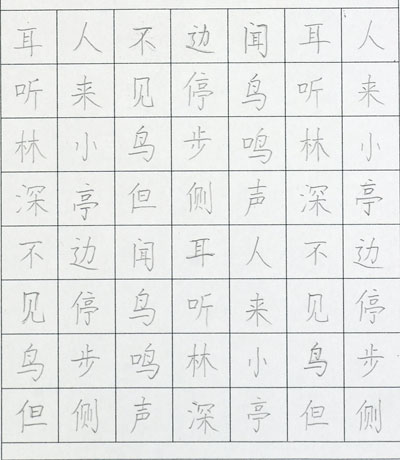 耳人不边闻耳人
听来见停鸟听来
林小鸟步鸣林小
深亭但侧声深亭
不边闻耳人不边
见停鸟听来见停
鸟步鸣林小鸟步
但侧声深亭但侧